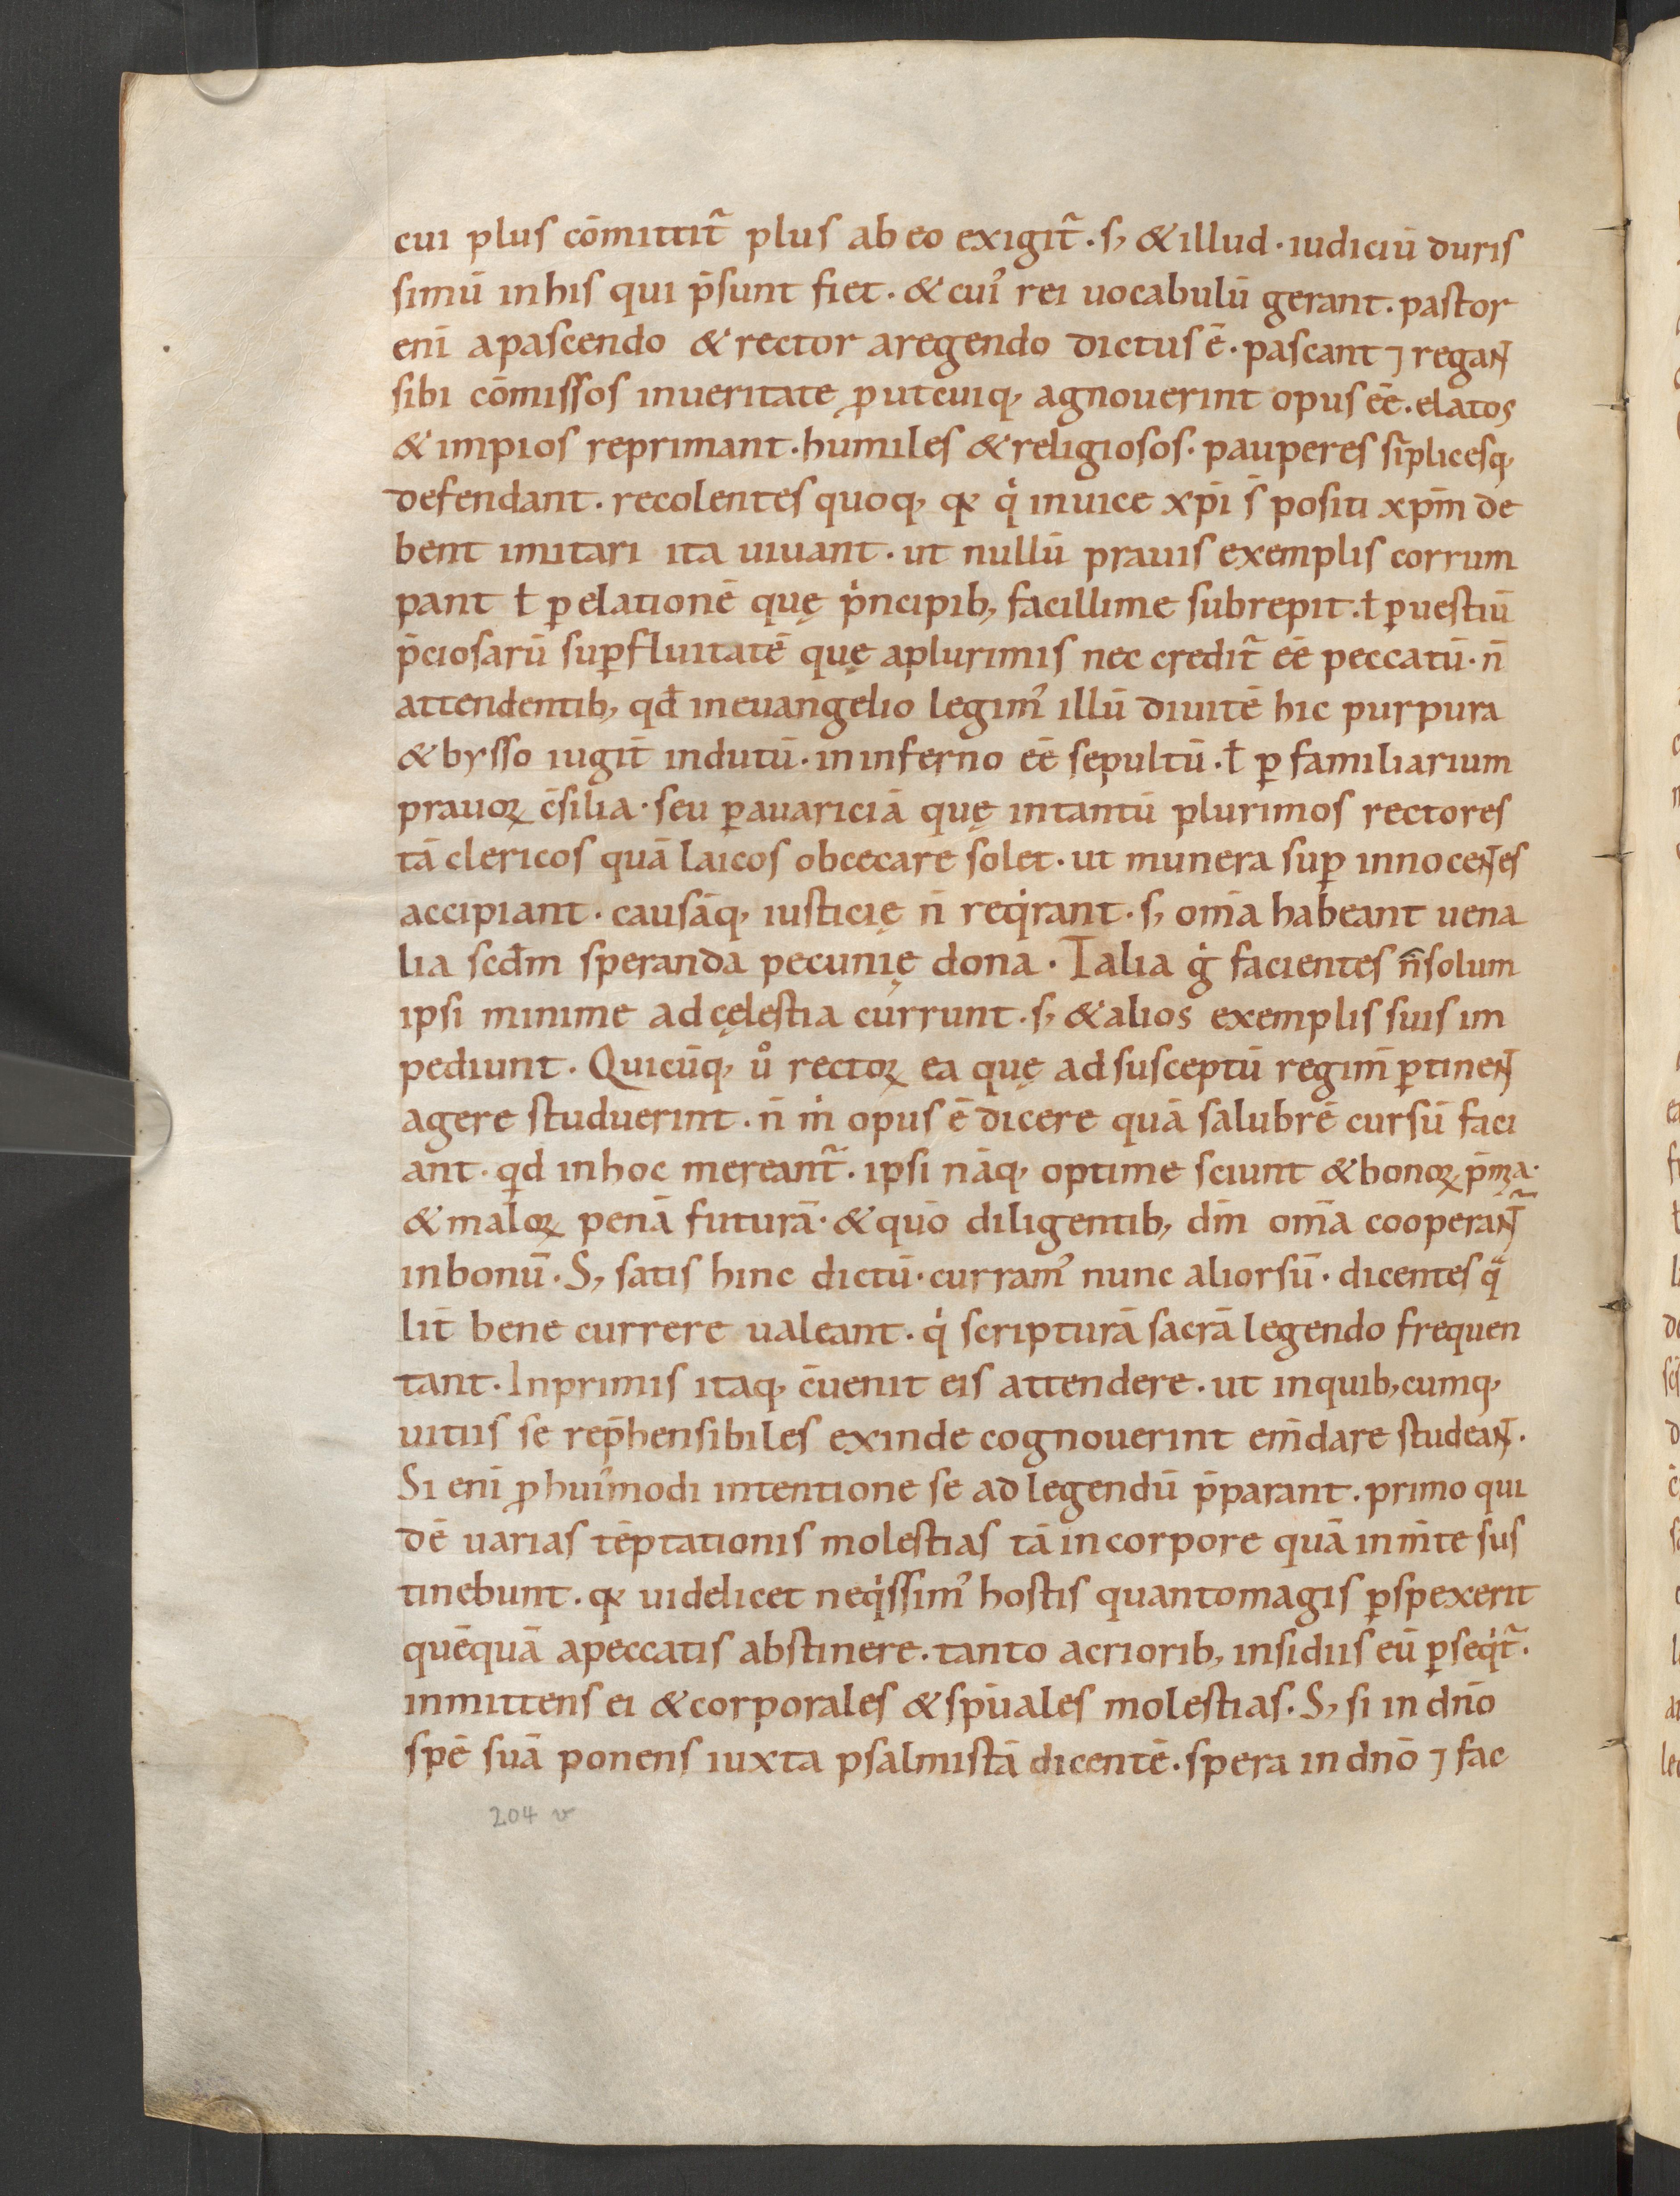 cui plus cōmittit᷑ plus ab eo exigit᷑ · s; & illud · iudiciū duris
simū in his qui p̄sunt fiet · & cui᷒ rei uocabulū gerant · pastor
enī a pascendo & rector a regendo dictus ē · pascant ⁊ regant
sibi cōmissos in ueritate ꝓut cuiq; agnouerint opus eē · elatos
& impios reprimant · humiles & religiosos · pauperes sīplicesq;
defendant · recolentes quoq; qꝛ qi̇ in uice xp̄i s̄ positi xp̄m de
bent imitari ita uiuant · ut nullū prauis exemplis corrum
pant ł ꝑ elationē quę pi̇ncipib; facillime subrepit · ł ꝑ uestiū
p̄ciosarū suꝑfluitatē quę a plurimis nec credit᷑ eē peccatū · n̄
attendentib; qđ in euangelio legim᷒ illū diuitē hic purpura
& bysso iugit̄ indutū · in inferno eē sepultū · ł ꝑ familiarium
prauoꝝ c̄silia · seu ꝑ auariciā quę in tantū plurimos rectores
tā clericos quā laicos obcecare solet · ut munera suꝑ innocentes
accipiant · causāq; iusticię n̄ reqi̇rant · s; om̄a habeant uena
lia scđm speranda pecunię dona · Talia gi̇ facientes n̄ solum
ipsi minime ad cęlestia currunt · s; & alios exemplis suis im
pediunt · Quicūq; uͦ rectoꝝ ea quę ad susceptū regim̄ ꝑtinent
agere studuerint · n̄ mi̇ opus ē dicere quā salubrē cursū faci
ant · qd in hoc mereant᷑ · ipsi nāq; optime sciunt & bonoꝝ p̄mia ·
& maloꝝ penā futurā · & quō diligentib; dm̄ om̄a cooperant᷑
in bonū · S; satis hinc dictū · curram᷒ nunc aliorsū · dicentes qͣ
lit̄ bene currere ualeant · qi̇ scripturā sacrā legendo frequen
tant · Inprimis itaq; c̄uenit eis attendere · ut in quib;cumq;
uitiis se rep̄hensibiles exinde cognouerint em̄dare studeant ·
Si enī ꝓ hui᷒modi intentione se ad legendū p̄parant · primo qui
dē uarias tēptationis molestias tā in corpore quā in m̄te sus
tinebunt · qꝛ uidelicet neqi̇ssim᷒ hostis quanto magis ꝑspexerit
quēquā a peccatis abstinere · tanto acriorib; insidiis eū ꝑseqi̇t᷑ ·
inmittens ei & corporales & sp̄uales molestias · S; si in dn̄o
spē suā ponens iuxta psalmistā dicentē · spera in dn̄o ⁊ fac
204 v